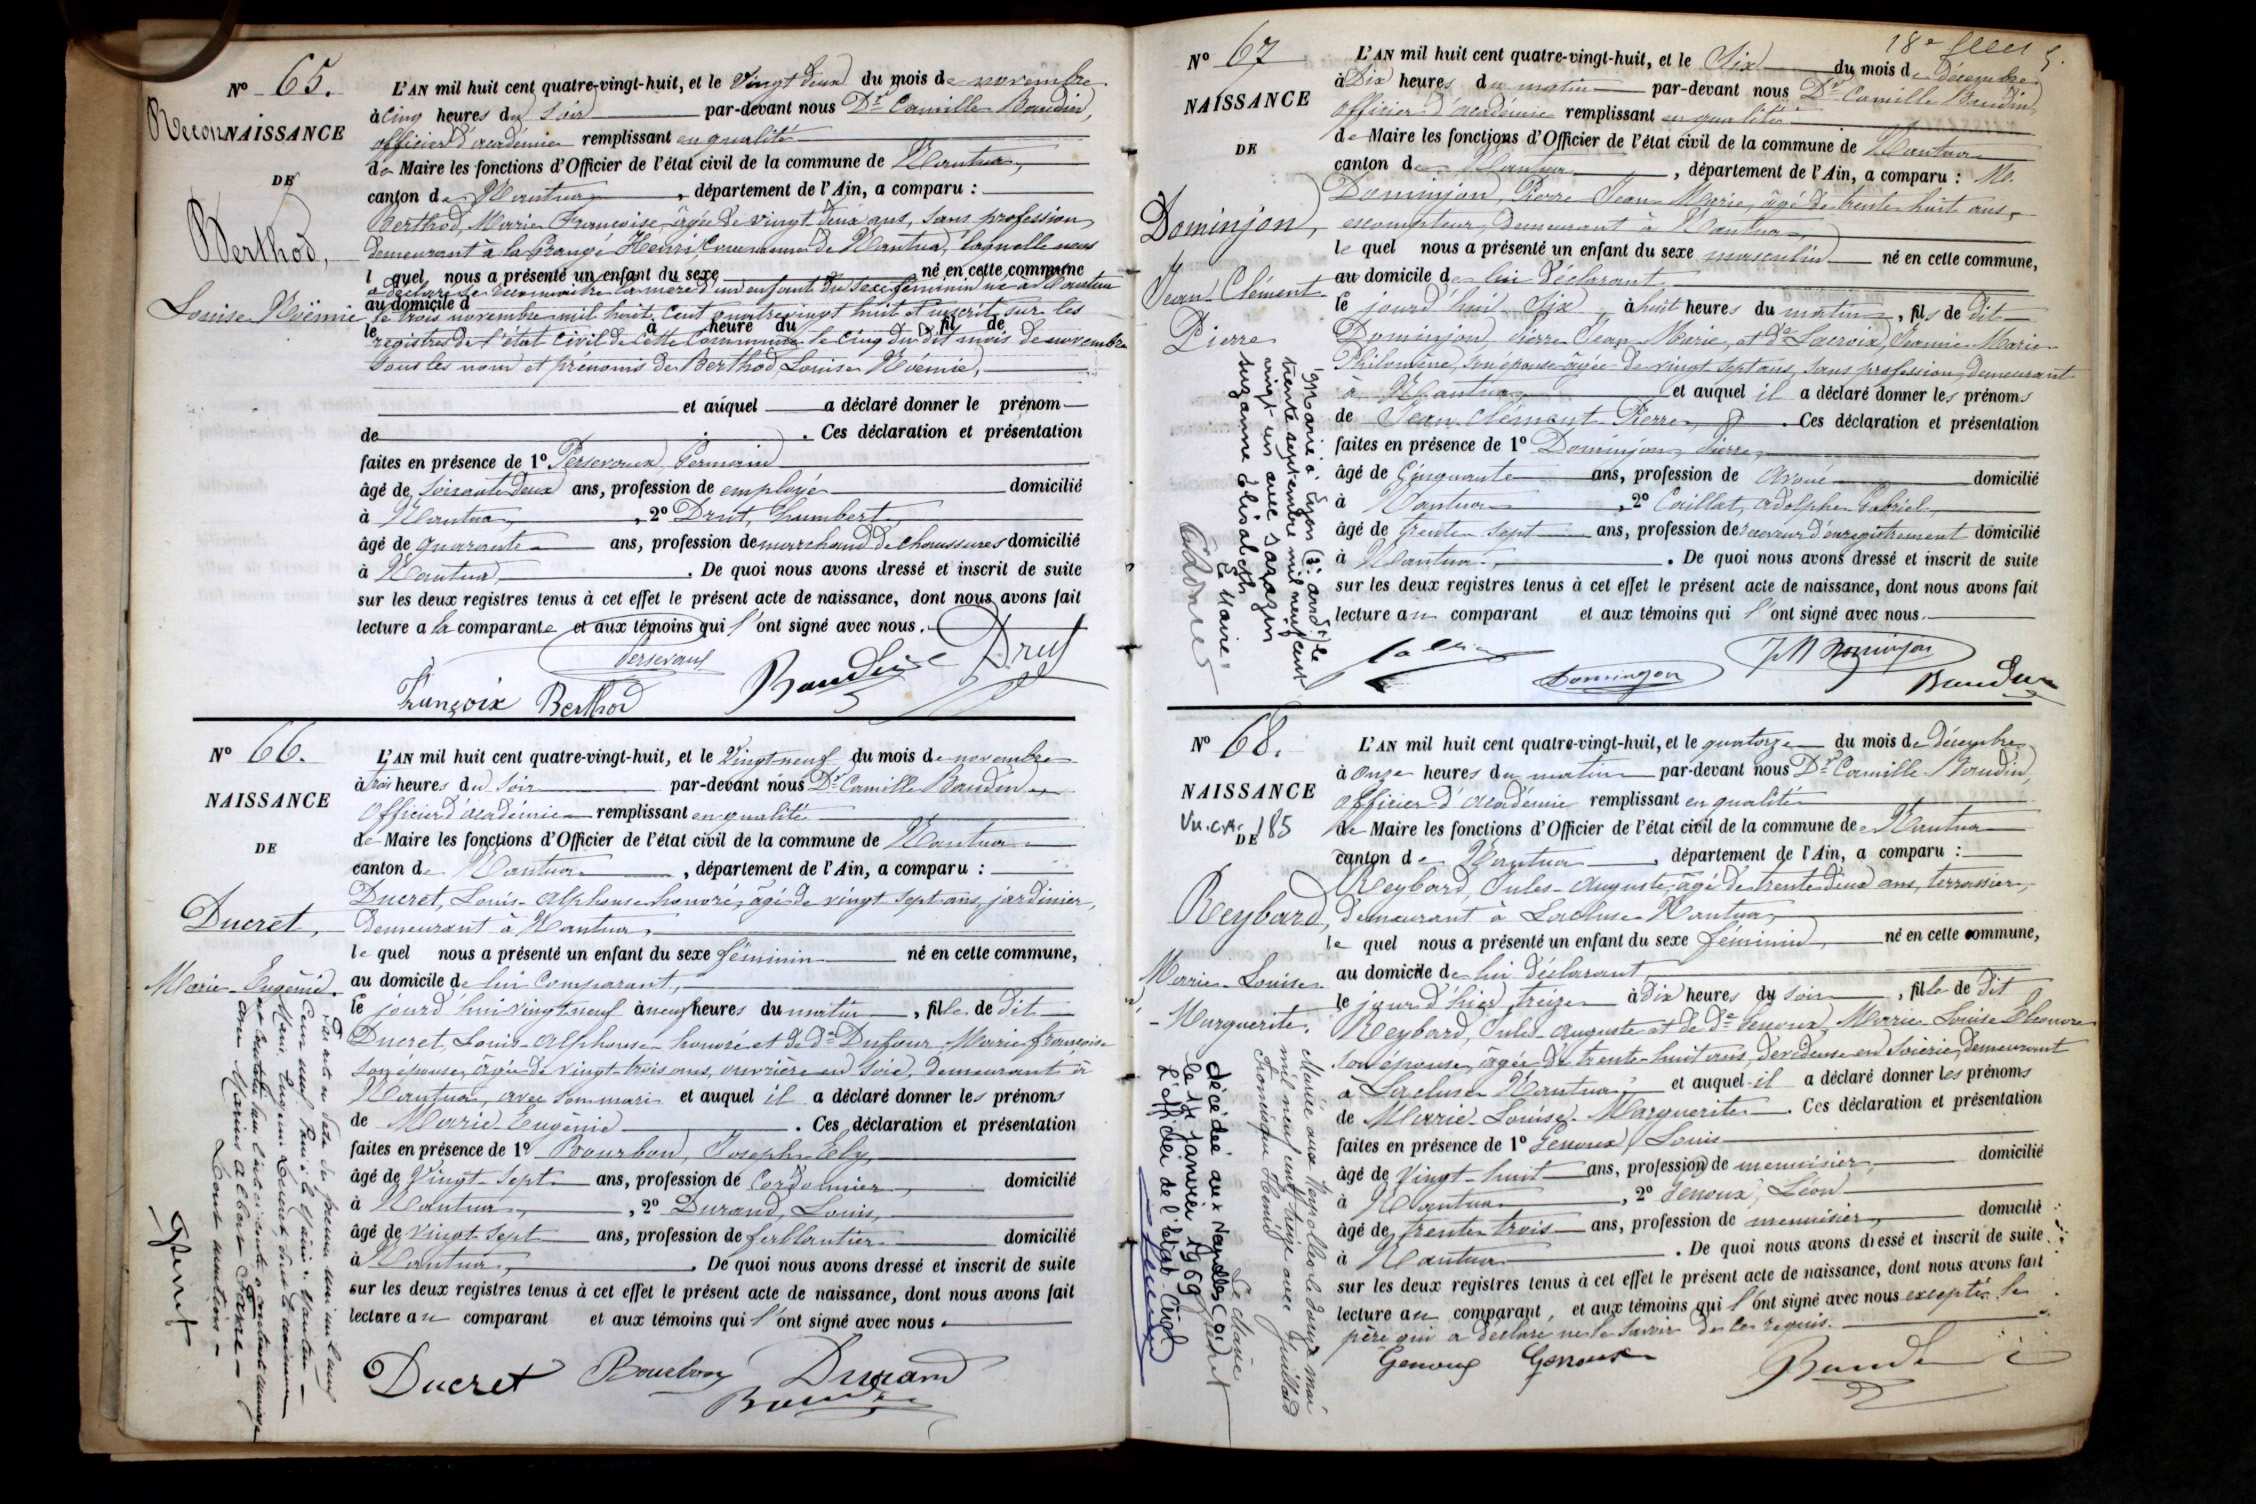 Nº 65.
ReconNAISSANCE
DE
Berthod,
Louise Noëmie
L'AN mil huit cent quatre-vingt-huit, et le Vingt deux du mois de novembre
à cinq heures du soir par-devant nous Dr Camille Baudin,
officier d'académie remplissant en qualité
de Maire les fonctions d'Officier de l'état civil de la commune de Nantua,
canton de Nantua, département de l'Ain, a comparu :
Berthod, Marie Françoise, âgée de vingt deux ans, sans profession,
demeurant à la Grange Henri, commune de Nantua, laquelle nous
l quel nous a présenté un enfant du sexe né en cette commune
a déclaré se reconnaitre la mère d'un enfant du sexe féminin né à Nantua
au domicile d
le trois novembre mil huit cent quatre vingt huit et inscrit sur les
le à heure du , fil de
registres de l'état civil de cette commune le cinq du dit mois de novembre
sous les nom et prénoms de Berthod, Louise Noémie,
et auquel a déclaré donner le prénom
de . Ces déclaration et présentation
faites en présence de 1º Persevaux, Germain
âgé de soixante deux ans, profession de employé domicilié
à Nantua, , 2º Drut, Humbert,
âgé de quarante ans, profession de marchand de chaussures domicilié
à Nantua, . De quoi nous avons dressé et inscrit de suite
sur les deux registres tenus à cet effet le présent acte de naissance, dont nous avons fait
lecture a la comparante et aux témoins qui l'ont signé avec nous.
Persevaux
Drut
Baudin
Françoix Berthod
Nº 66.
NAISSANCE
DE
Ducret,
Marie-Eugénie.
L'AN mil huit cent quatre-vingt-huit, et le Vingt neuf du mois de novembre
à trois heures du soir par-devant nous Dr Camille Baudin
Officier d'académie remplissant en qualité
de Maire les fonctions d'Officier de l'état civil de la commune de Nantua
canton de Nantua, département de l'Ain, a comparu :
Ducret, Louis-Alphonse honoré, âgé de vingt sept ans, jardinier,
demeurant à Nantua,
le quel nous a présenté un enfant du sexe féminin né en cette commune,
au domicile de lui comparant,
le jourd'hui vingt neuf à neuf heures du matin, fille de dit
Ducret, Louis-Alphonse-honoré et de de Dufour Marie françoise
son épouse, âgée de vingt-trois ans, ouvrière en soie, demeurant à
Nantua, avec son mari et auquel il a déclaré donner les prénoms
de Marie Eugénie . Ces déclaration et présentation
faites en présence de 1º Bourbon, Joseph Ely,
âgé de Vingt-sept ans, profession de Cordonnier, domicilié
à Nantua, , 2º Durand, Louis,
âgé de vingt sept ans, profession de ferblantier domicilié
à Nantua, . De quoi nous avons dressé et inscrit de suite
sur les deux registres tenus à cet effet le présent acte de naissance, dont nous avons fait
lecture au comparant et aux témoins qui l'ont signé avec nous.
Ducret Bourbon Durand
Baudin
Par acte en date du premier mai mil neuf
Cent neuf
Marie Eugénie Ducret
avec Marius Albert Favre
Dont mention
Nº 67
NAISSANCE
DE
Dominjon,
Jean-Clément
Pierre
L'AN mil huit cent quatre-vingt-huit, et le Six du mois de décembre
à Dix heures du matin par-devant nous Dr Camille Baudin
officier d'académie remplissant en qualité
de Maire les fonctions d'Officier de l'état civil de la commune de Nantua
canton de Nantua, département de l'Ain, a comparu : M.
Dominjon, Pierre Jean Marie, âgé de trente huit ans,
escompteur, demeurant à Nantua,
le quel nous a présenté un enfant du sexe masculin né en cette commune,
au domicile de lui déclarant
le jourd'hui Six, à huit heures du matin, fils de dit
Dominjon, Pierre Jean Marie, et de Lacroix, Jeanne Marie
Philomène, son épouse âgée de vingt sept ans, sans profession, demeurant
à Nantua, et auquel il a déclaré donner les prénoms
de Jean Clément Pierre, . Ces déclaration et présentation
faites en présence de 1º Dominjon, Pierre,
âgé de Cinquante ans, profession de Avoué domicilié
à Nantua , 2º Caillat, Adolphe Gabriel,
âgé de trente sept ans, profession de receveur d'enregistrement domicilié
à Nantua . De quoi nous avons dressé et inscrit de suite
sur les deux registres tenus à cet effet le présent acte de naissance, dont nous avons fait
lecture au comparant et aux témoins qui l'ont signé avec nous.
Dominjon
Baudin
Marié à Lyon (2e arrdt) le
trente septembre mil neuf cent
vingt-un avec Sarazin
Suzanne Elisabeth
Le Maire
Nº 68.
NAISSANCE
DE
Reybard,
Marie-Louise
-Marguerite.
L'AN mil huit cent quatre-vingt-huit, et le quatorze du mois de décembre
à onze heures du matin par-devant nous Dr Camille Baudin,
officier d'académie remplissant en qualité
de Maire les fonctions d'Officier de l'état civil de la commune de Nantua
canton de Nantua, département de l'Ain, a comparu :
Reybard, Jules-Auguste, âgé de trente deux ans, terrassier,
demeurant à Lacluse Nantua,
le quel nous a présenté un enfant du sexe féminin né en cette commune,
au domicile de lui déclarant
le jour d'hier, treize à dix heures du soir, fille de dit
Reybard, Jules-Auguste et de de Genoux, Marie-Louise Eléonore
son épouse, âgée de trente-huit ans, dévideuse en soierie, demeurant
à Lacluse Nantua, et auquel il a déclaré donner les prénoms
de Marie-Louise-Marguerite . Ces déclaration et présentation
faites en présence de 1º Genoux, Louis
âgé de Vingt-huit ans, profession de menuisier, domicilié
à Nantua , 2º Genoux, Léon
âgé de trente trois ans, profession de menuisier, domicilié
à Nantua . De quoi nous avons dressé et inscrit de suite
sur les deux registres tenus à cet effet le présent acte de naissance, dont nous avons fait
lecture au comparant, et aux témoins qui l'ont signé avec nous excepté le
père qui a déclaré ne le savoir de ce requis.
Genoux Genoux
Baudin
Mariée aux Neyrolles le douze mai
mil neuf cent treize avec Juillard
Le Maire
décédée aux Neyrolles (01)
le 12 janvier 1969
L'officier de l'état civil